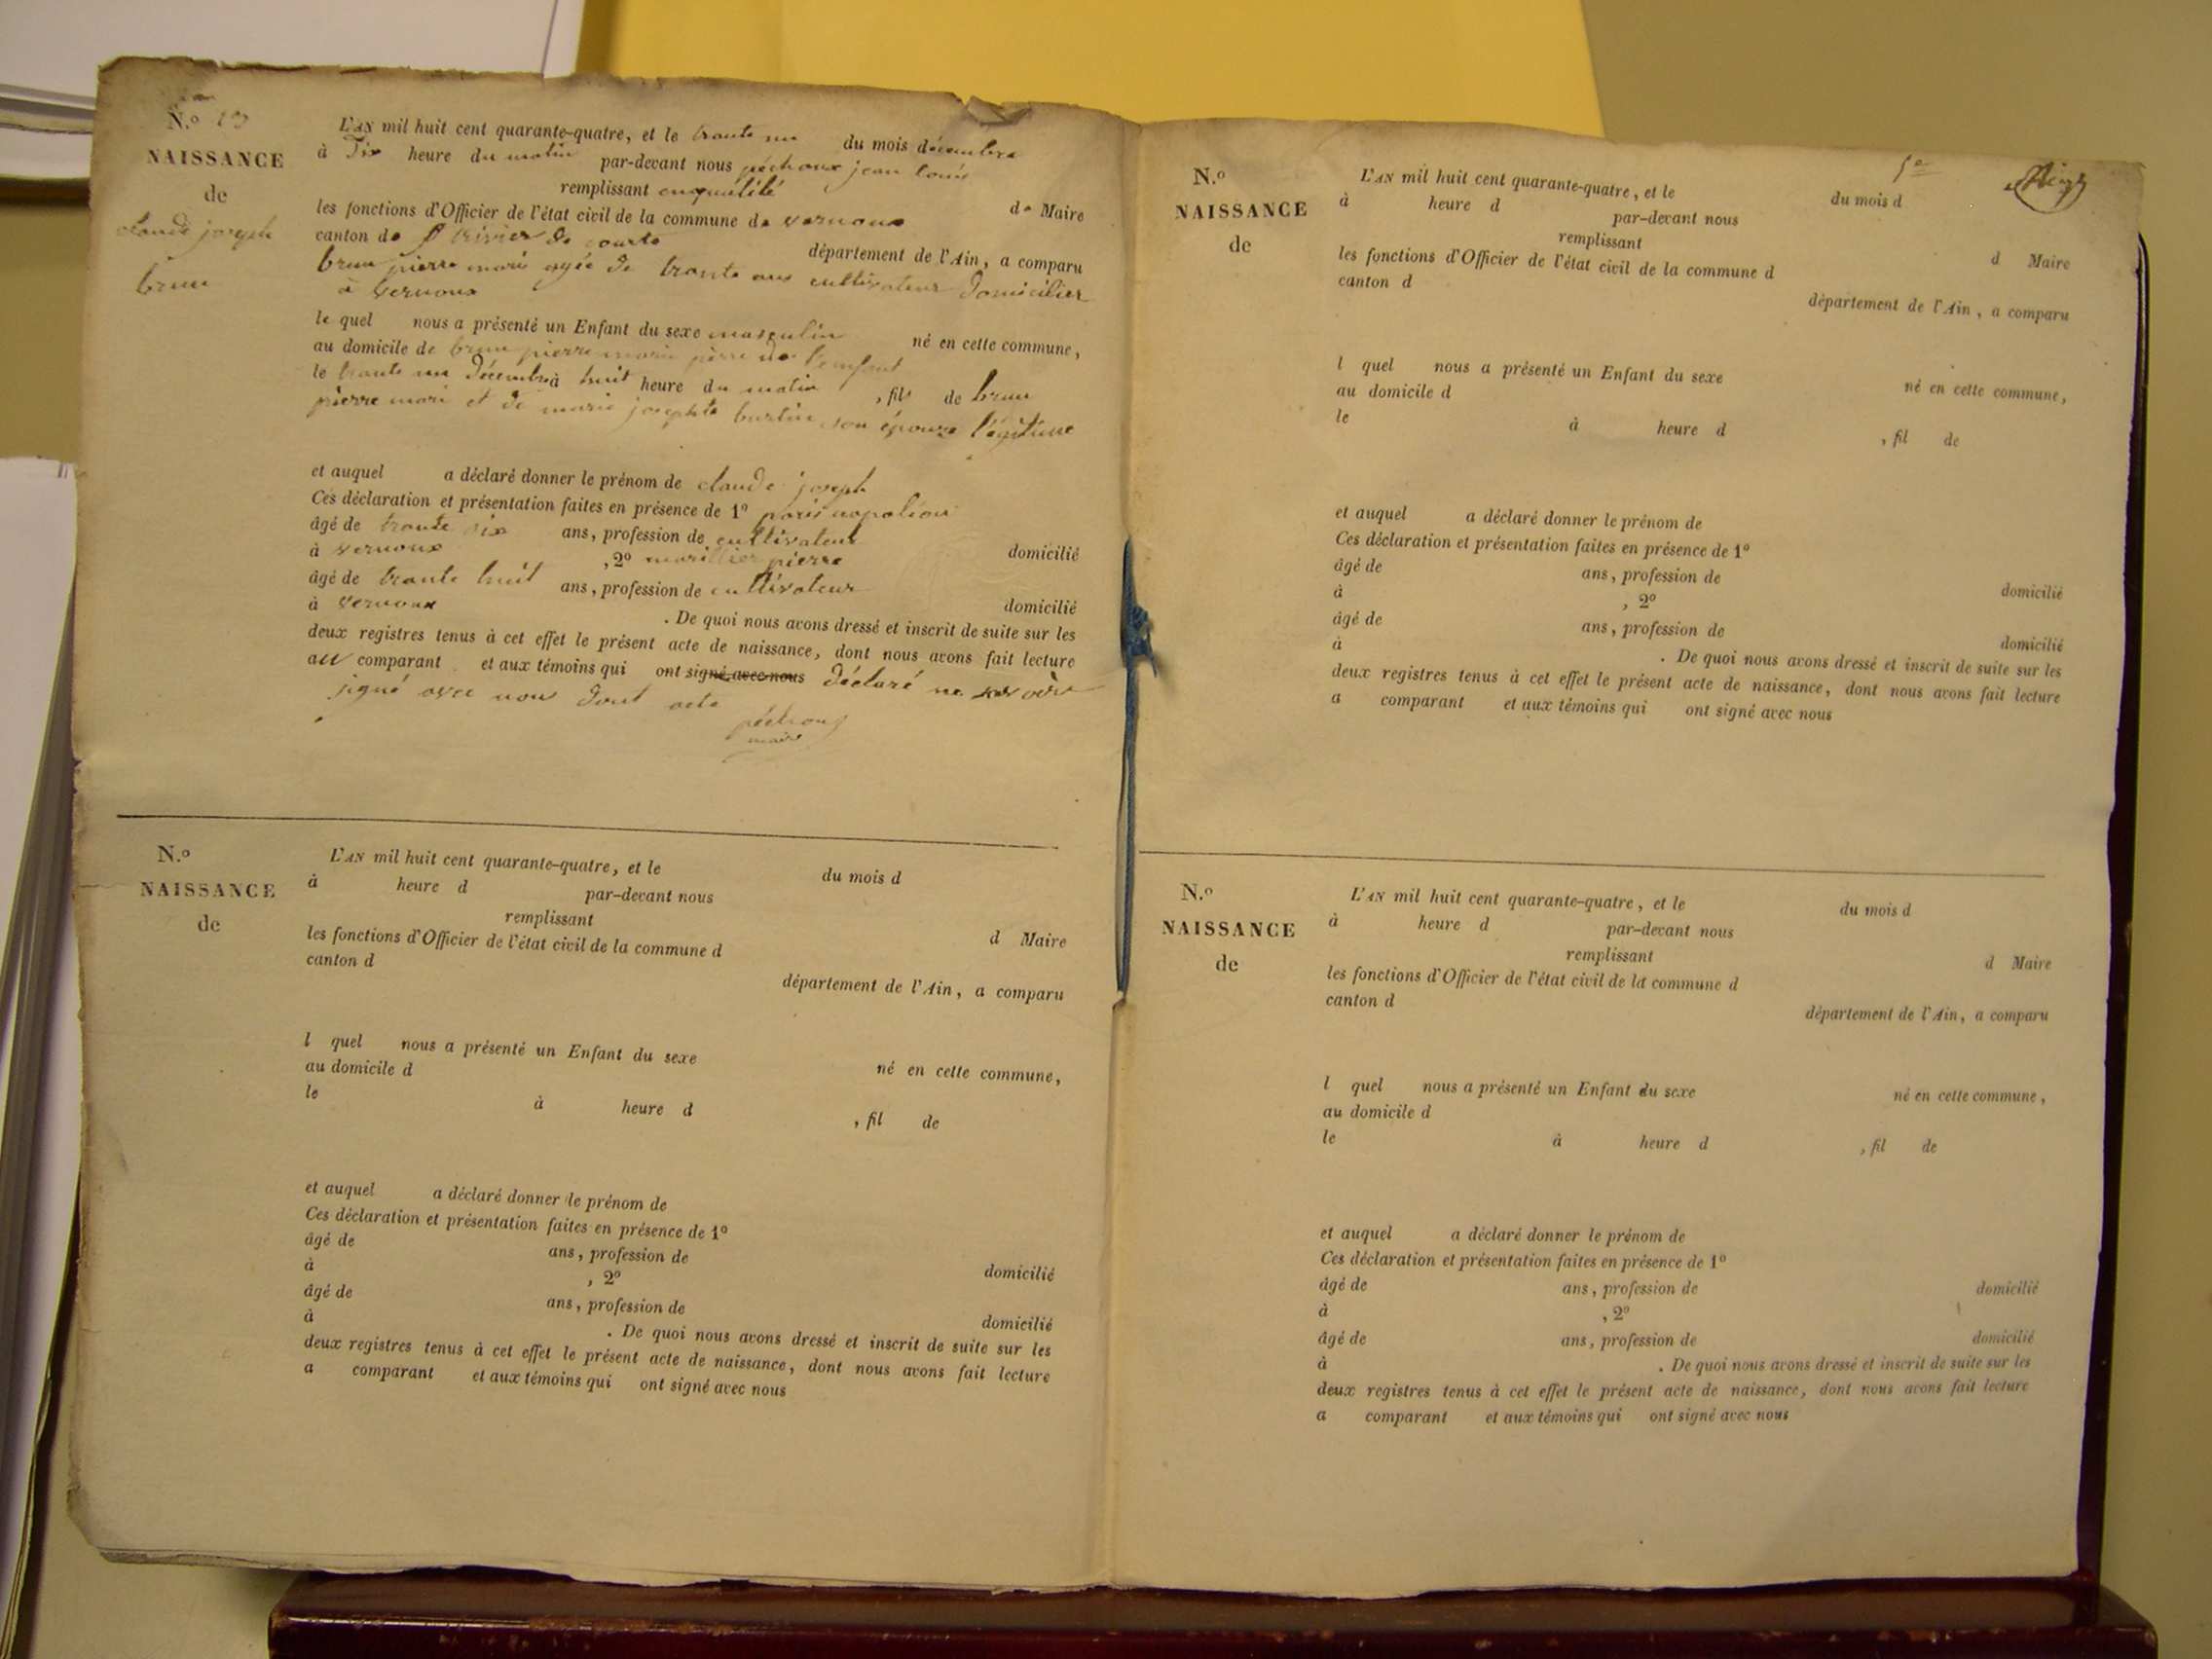 N.º
NAISSANCE
de
claude joseph
brun
L'AN mil huit cent quarante-quatre, et le trante un du mois décembre
à Dix heure du matin par-devant nous péchoux jean louis
remplissant enqualité de Maire
les fonctions d'Officier de l'état civil de la commune de vernoux
canton de St trivier de courte département de l'Ain, a comparu
brun pierre mari agée de trante ans cultivateur domicilier
à vernoux
le quel nous a présenté un Enfant du sexe masculin né en cette commune,
au domicile de brun pierre marie père de l'enfant
le trante un décembre à huit heure du matin , fils de brun
pierre mari et de marie josephte burtin son épouze légitime
et auquel a déclaré donner le prénom de claude joseph
Ces déclaration et présentation faites en présence de 1º paris napoléon
âgé de trante six ans, profession de cultivateur domicilié
à vernoux , 2º morillier pierre
âgé de trante huit ans, profession de cultivateur domicilié
à vernoux . De quoi nous avons dressé et inscrit de suite sur les
deux registres tenus à cet effet le présent acte de naissance, dont nous avons fait lecture
au comparant et aux témoins qui ont signé avec nous déclaré ne savoir
signé avec nous dont acte
péchoux
maire
N.º
NAISSANCE
de
L'AN mil huit cent quarante-quatre, et le du mois d
à heure d par-devant nous
remplissant d Maire
les fonctions d'Officier de l'état civil de la commune d
canton d département de l'Ain, a comparu
l quel nous a présenté un Enfant du sexe né en cette commune,
au domicile d
le à heure d , fil de
et auquel a déclaré donner le prénom de
Ces déclaration et présentation faites en présence de 1º
âgé de ans, profession de domicilié
à , 2º
âgé de ans, profession de domicilié
à . De quoi nous avons dressé et inscrit de suite sur les
deux registres tenus à cet effet le présent acte de naissance, dont nous avons fait lecture
a comparant et aux témoins qui ont signé avec nous
N.º
NAISSANCE
de
L'AN mil huit cent quarante-quatre, et le du mois d
à heure d par-devant nous
remplissant d Maire
les fonctions d'Officier de l'état civil de la commune d
canton d département de l'Ain, a comparu
l quel nous a présenté un Enfant du sexe né en cette commune,
au domicile d
le à heure d , fil de
et auquel a déclaré donner le prénom de
Ces déclaration et présentation faites en présence de 1º
âgé de ans, profession de domicilié
à , 2º
âgé de ans, profession de domicilié
à . De quoi nous avons dressé et inscrit de suite sur les
deux registres tenus à cet effet le présent acte de naissance, dont nous avons fait lecture
a comparant et aux témoins qui ont signé avec nous
N.º
NAISSANCE
de
L'AN mil huit cent quarante-quatre, et le du mois d
à heure d par-devant nous
remplissant d Maire
les fonctions d'Officier de l'état civil de la commune d
canton d département de l'Ain, a comparu
l quel nous a présenté un Enfant du sexe né en cette commune,
au domicile d
le à heure d , fil de
et auquel a déclaré donner le prénom de
Ces déclaration et présentation faites en présence de 1º
âgé de ans, profession de domicilié
à , 2º
âgé de ans, profession de domicilié
à . De quoi nous avons dressé et inscrit de suite sur les
deux registres tenus à cet effet le présent acte de naissance, dont nous avons fait lecture
a comparant et aux témoins qui ont signé avec nous